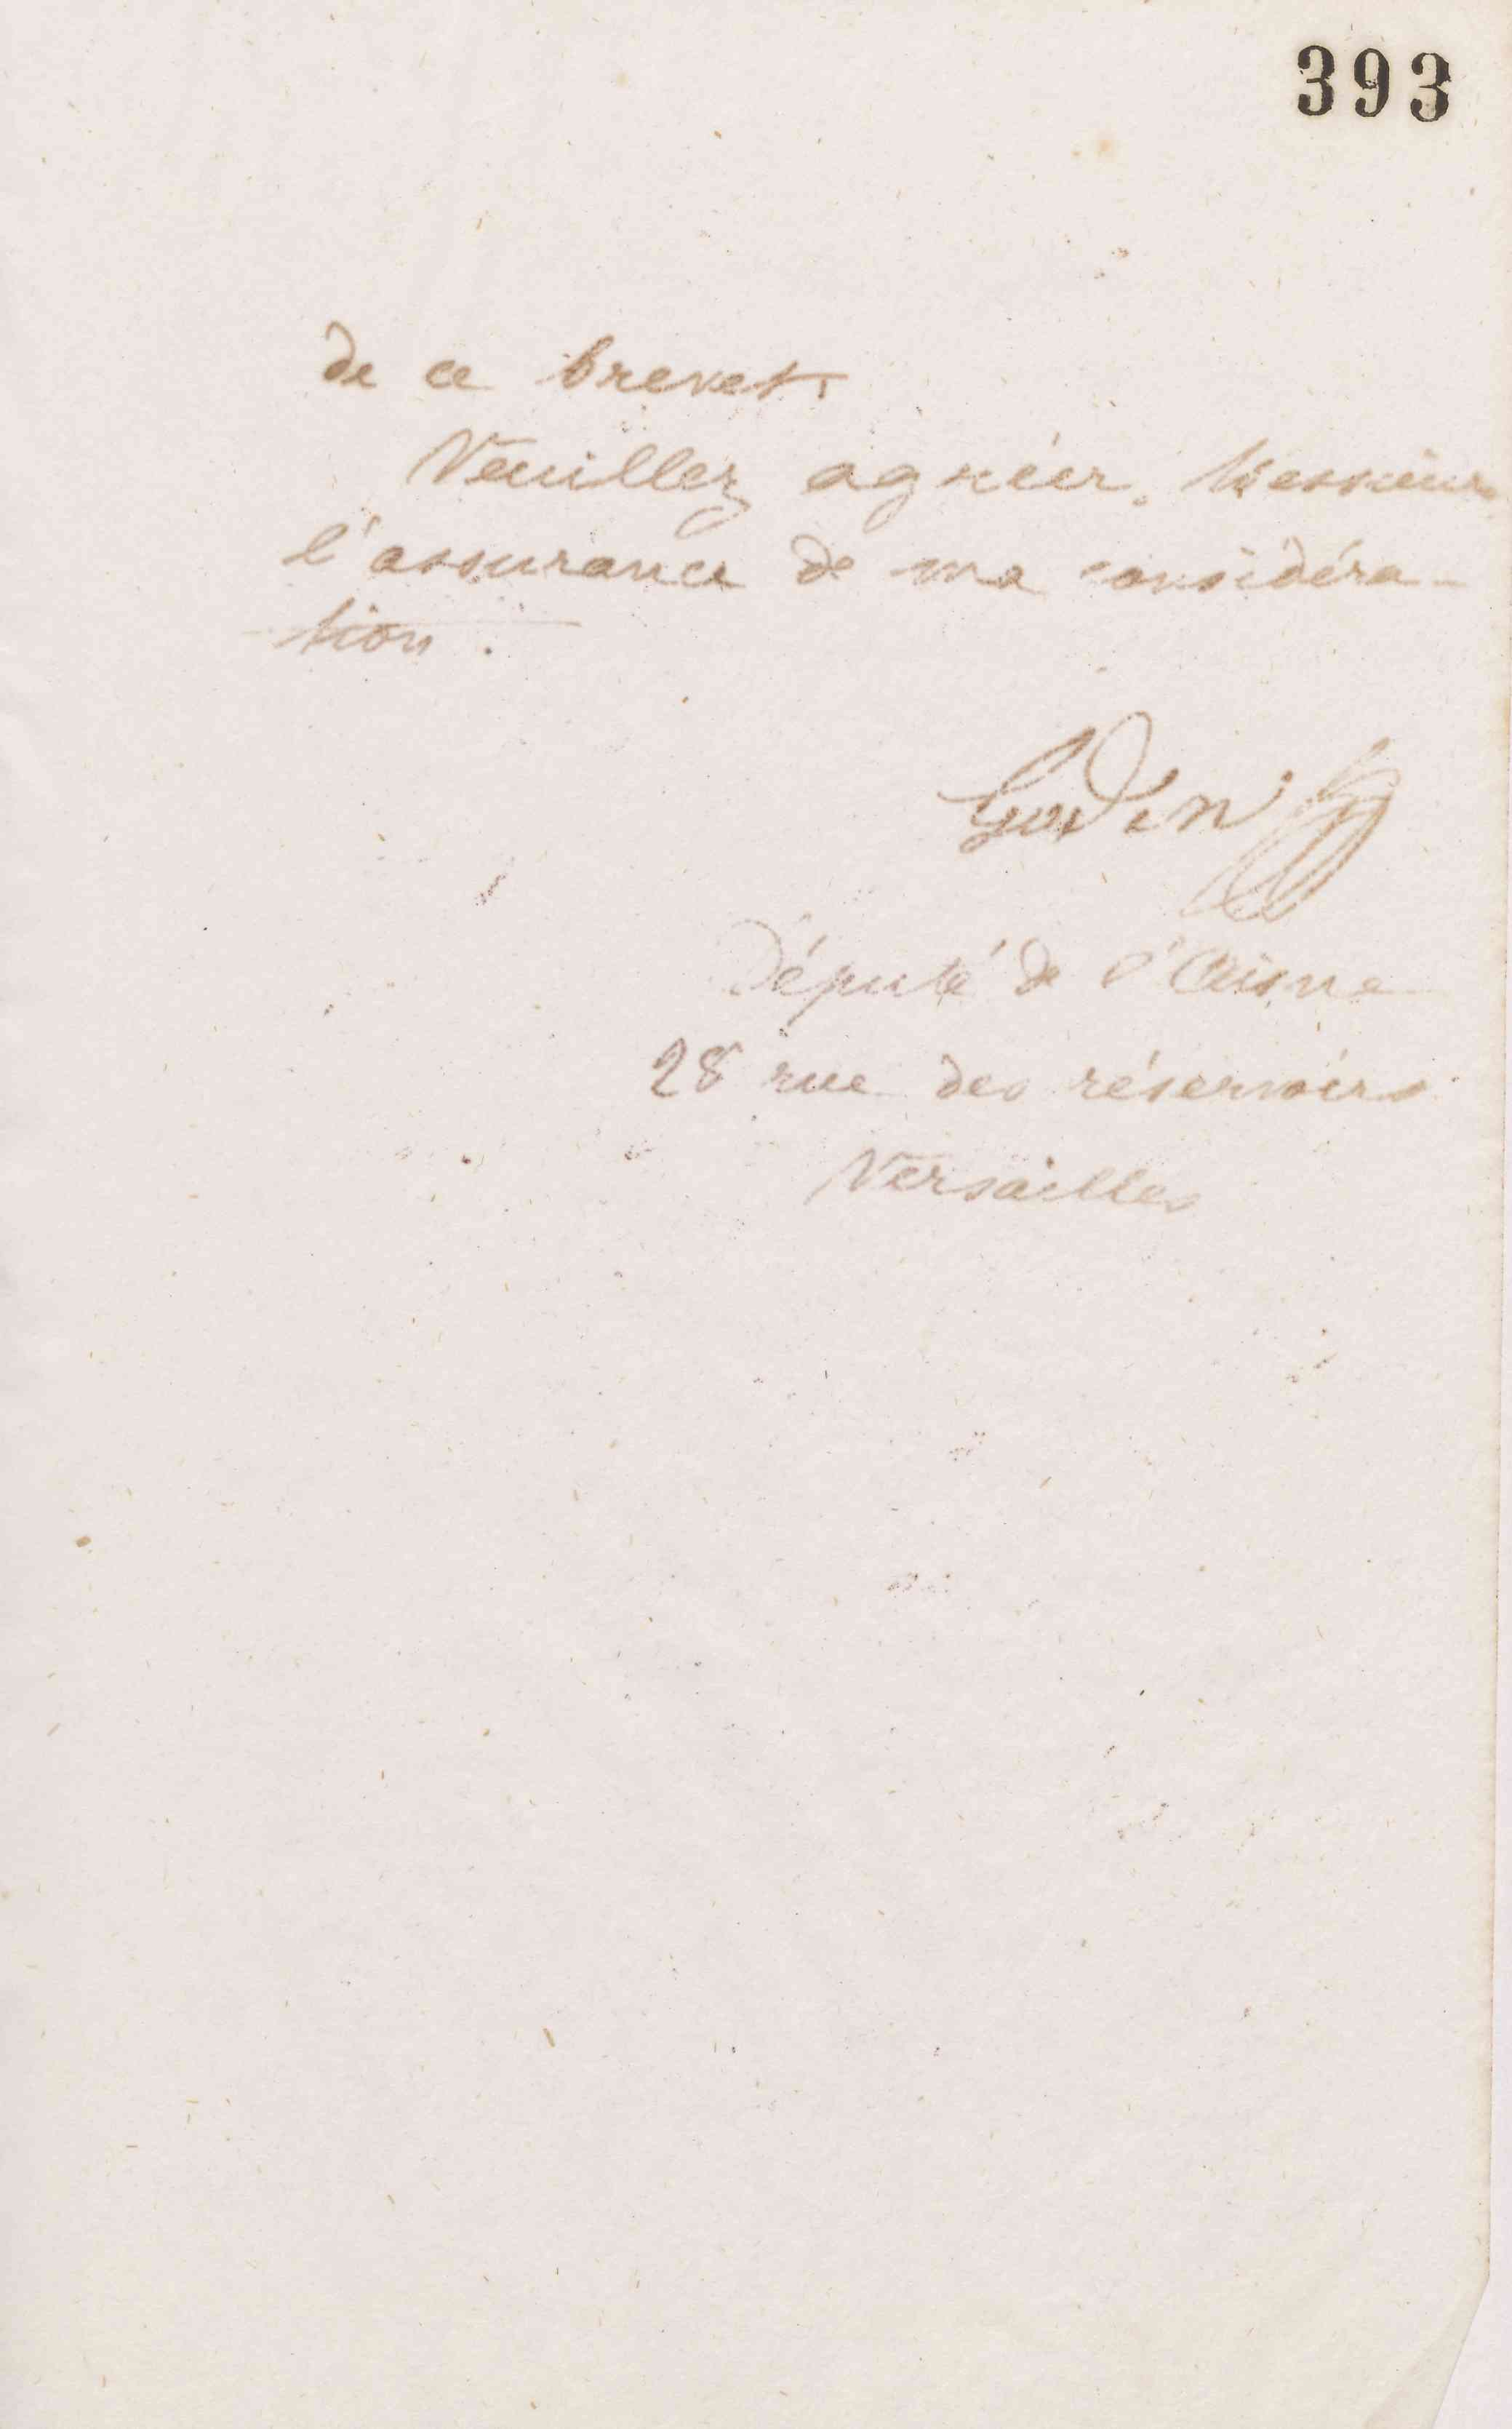 393
de ce brevet.
Veuillez agréer, Messieurs
l'assurance de ma considéra-
tion.
Godin
Député de l'Aisne
28 rue des réservoirs
Versailles